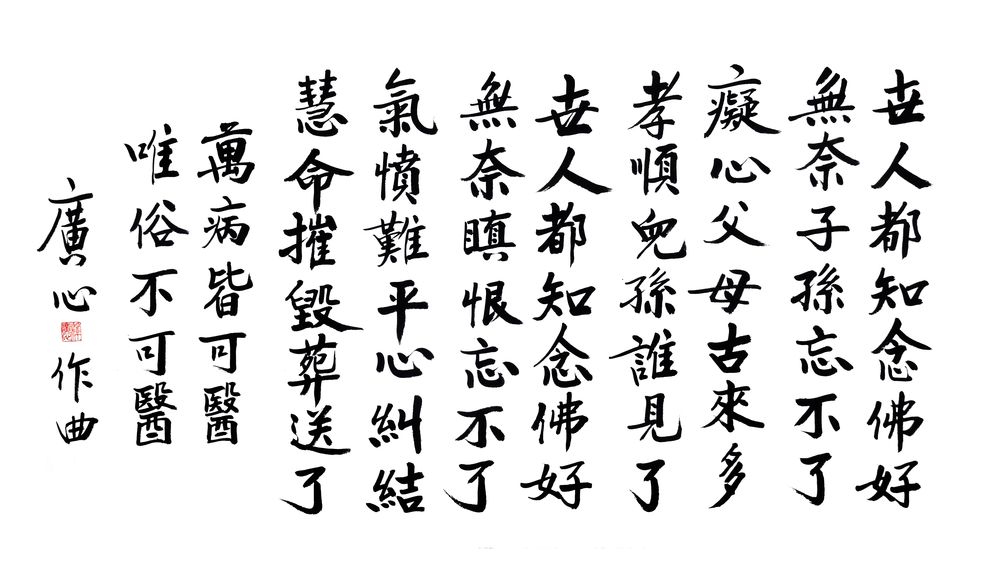 世人都知念佛好
無奈子孫忘不了
癡心父母古來多
孝順兒孫誰見了
世人都知念佛好
無奈瞋恨忘不了
氣憤難平心糾結
慧命摧毀葬送了
萬病皆可醫
唯俗不可醫
廣心作曲